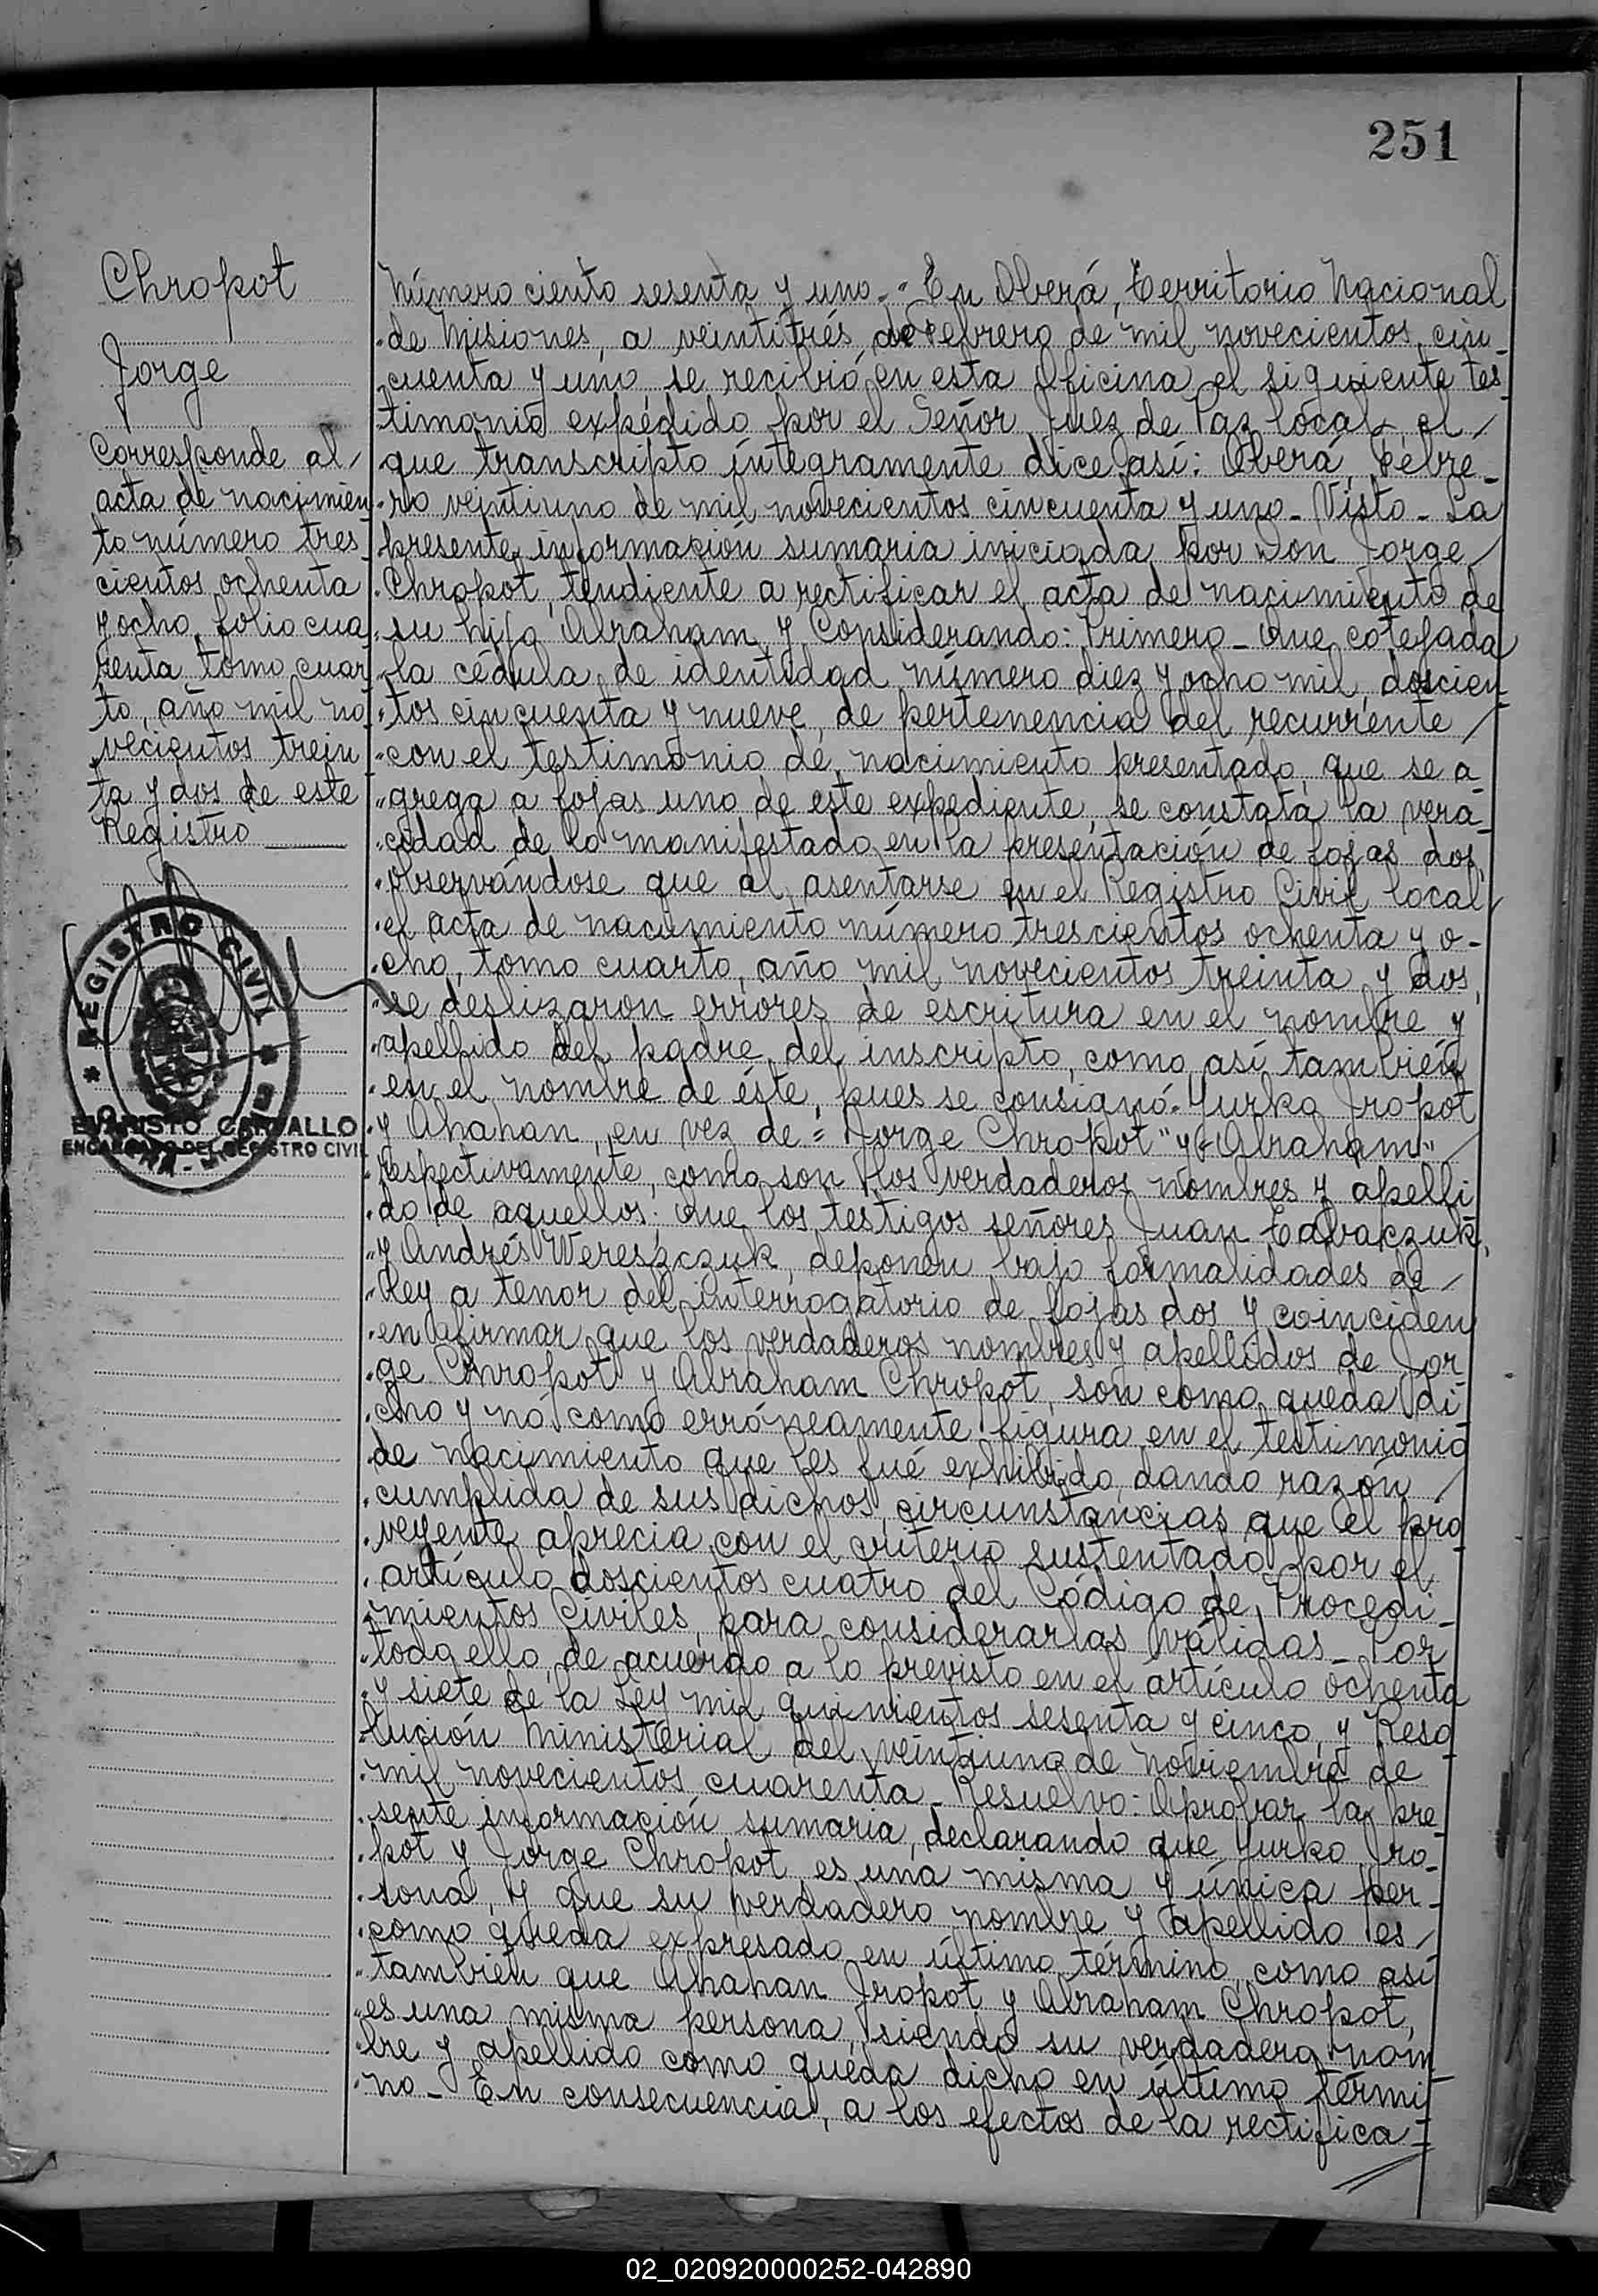 251
Chropot
Jorge
Corresponde al/
acta de nacimien
to número tres-
cientos ochenta
y ocho, folio cua
renta, tomo cuar
to, año mil no
vecientos trein
ta y dos de este
Registro
REGISTRO CIVIL
EVARISTO CARVALLO
ENCARGADO DEL REGISTRO CIVIL
Número ciento sesenta y uno.- En Oberá, Territorio Nacional
de Misiones, a veintitrés de Febrero de mil novecientos cin-
cuenta y uno, se recibió en esta Oficina el siguiente tes
timonio expedido por el Señor Juez de Paz local, el/
que transcripto íntegramente dice así: Oberá, Febre-
ro veintiuno de mil novecientos cincuenta y uno_ Visto_ La
presente información sumaria iniciada por Don Jorge/
Chropot, tendiente a rectificar el acta de nacimiento de
su hijo Abraham, y Considerando: Primero_ Que cotejada
la cédula de identidad número diez y ocho mil, doscien-
tos cincuenta y nueve, de pertenencia del recurrente/
con el testimonio de nacimiento presentado, que se a
grega a fojas uno de este expediente, se constata la vera-
cidad de lo manifestado en la presentación de fojas dos,
observándose que al asentarse en el Registro Civil local/
el acta de nacimiento número trescientos ochenta y o-
cho, tomo cuarto, año mil novecientos treinta y dos,
se deslizaron errores de escritura en el nombre y
apellido del padre del inscripto, como así también
en el nombre de éste, pues se consignó- Yurko Jropot
y Ahahan, en vez de = Jorge Chropot" y "Abraham"
respectivamente, como son los verdaderos nombres y apelli
do de aquellos; Que los testigos señores Juan Tabaczuk,
y Andrés Wereszczuk, deponen bajo formalidades de/
Ley a tenor del interrogatorio de fojas dos y coinciden
en afirmar que los verdaderos nombres y apellidos de Jor
ge Chropot y Abraham Chropot, son como queda di-
cho y no como erróneamente figura en el testimonio
de nacimiento que les fué exhibido, dando razón/
cumplida de sus dichos, circunstancias que el pro
veyente aprecia con el criterio sustentado por el
artículo doscientos cuatro del Código de Procedi-
mientos Civiles, para considerarlas válidas_ Por
todo ello, de acuerdo a lo previsto en el artículo ochenta
y siete de la Ley mil quinientos sesenta y cinco, y Reso
lución Ministerial del veintiuno de noviembre de
mil novecientos cuarenta_ Resuelvo: Aprobar la pre
sente información sumaria, declarando que Yurko Jro-
pot y Jorge Chropot, es una misma y única per-
sona, y que su verdadero nombre y apellido es/
como queda expresado en último término, como así
también que Ahahan Jropot y Abraham Chropot,
es una misma persona, siendo su verdadero nom-
bre y apellido como queda dicho en último térmi
no_ En consecuencia, a los efectos de la rectifica-
02_020920000252-042890